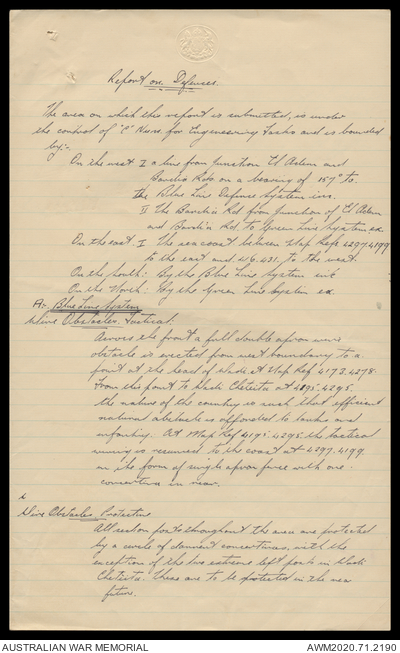 Report on Defences
The area on which this report is submitted, is under
the control of "C" for Engineering Tasks and is bounded
by:-
On the west I a line from Junction El Adem and
Bardia Rds on a bearing of 157° to
the Blue Line Defence System inc.
II The Bardia Rd from Junction of El Adem
and Bardia Rd to Green Line System ex
On the east. I The sea coast between Map Refs 4297.4199
to the east and 416.431. to the west.
On the South: By the Blue Line System inc
On the North: By the Green Line System ex.
A:- Blue Line System
Wire Obstacles. Tactical:
Across the front a full double apron wire
obstacle is erected from west boundary to a
point at the head of Wadi at Map Ref 4173.4278.
From this point to Wadi at 4195.4295.
the nature of the country is such that efficient
natural obstacle is afforded to tanks and
infantry. At Map Ref 4195.4295 the tactical
wiring is resumed to the coast at 4297.4199
in the form of single apron fence with one
concertina in rear.
Wire Obstacles Protective
All section posts throughout the area are protected
by a circle of dannert concertinas, with the
exception of the two extreme left posts in Wadi
These are to be protected in the near
future.
AUSTRALIAN WAR MEMORIAL
AWM2020.71.2190